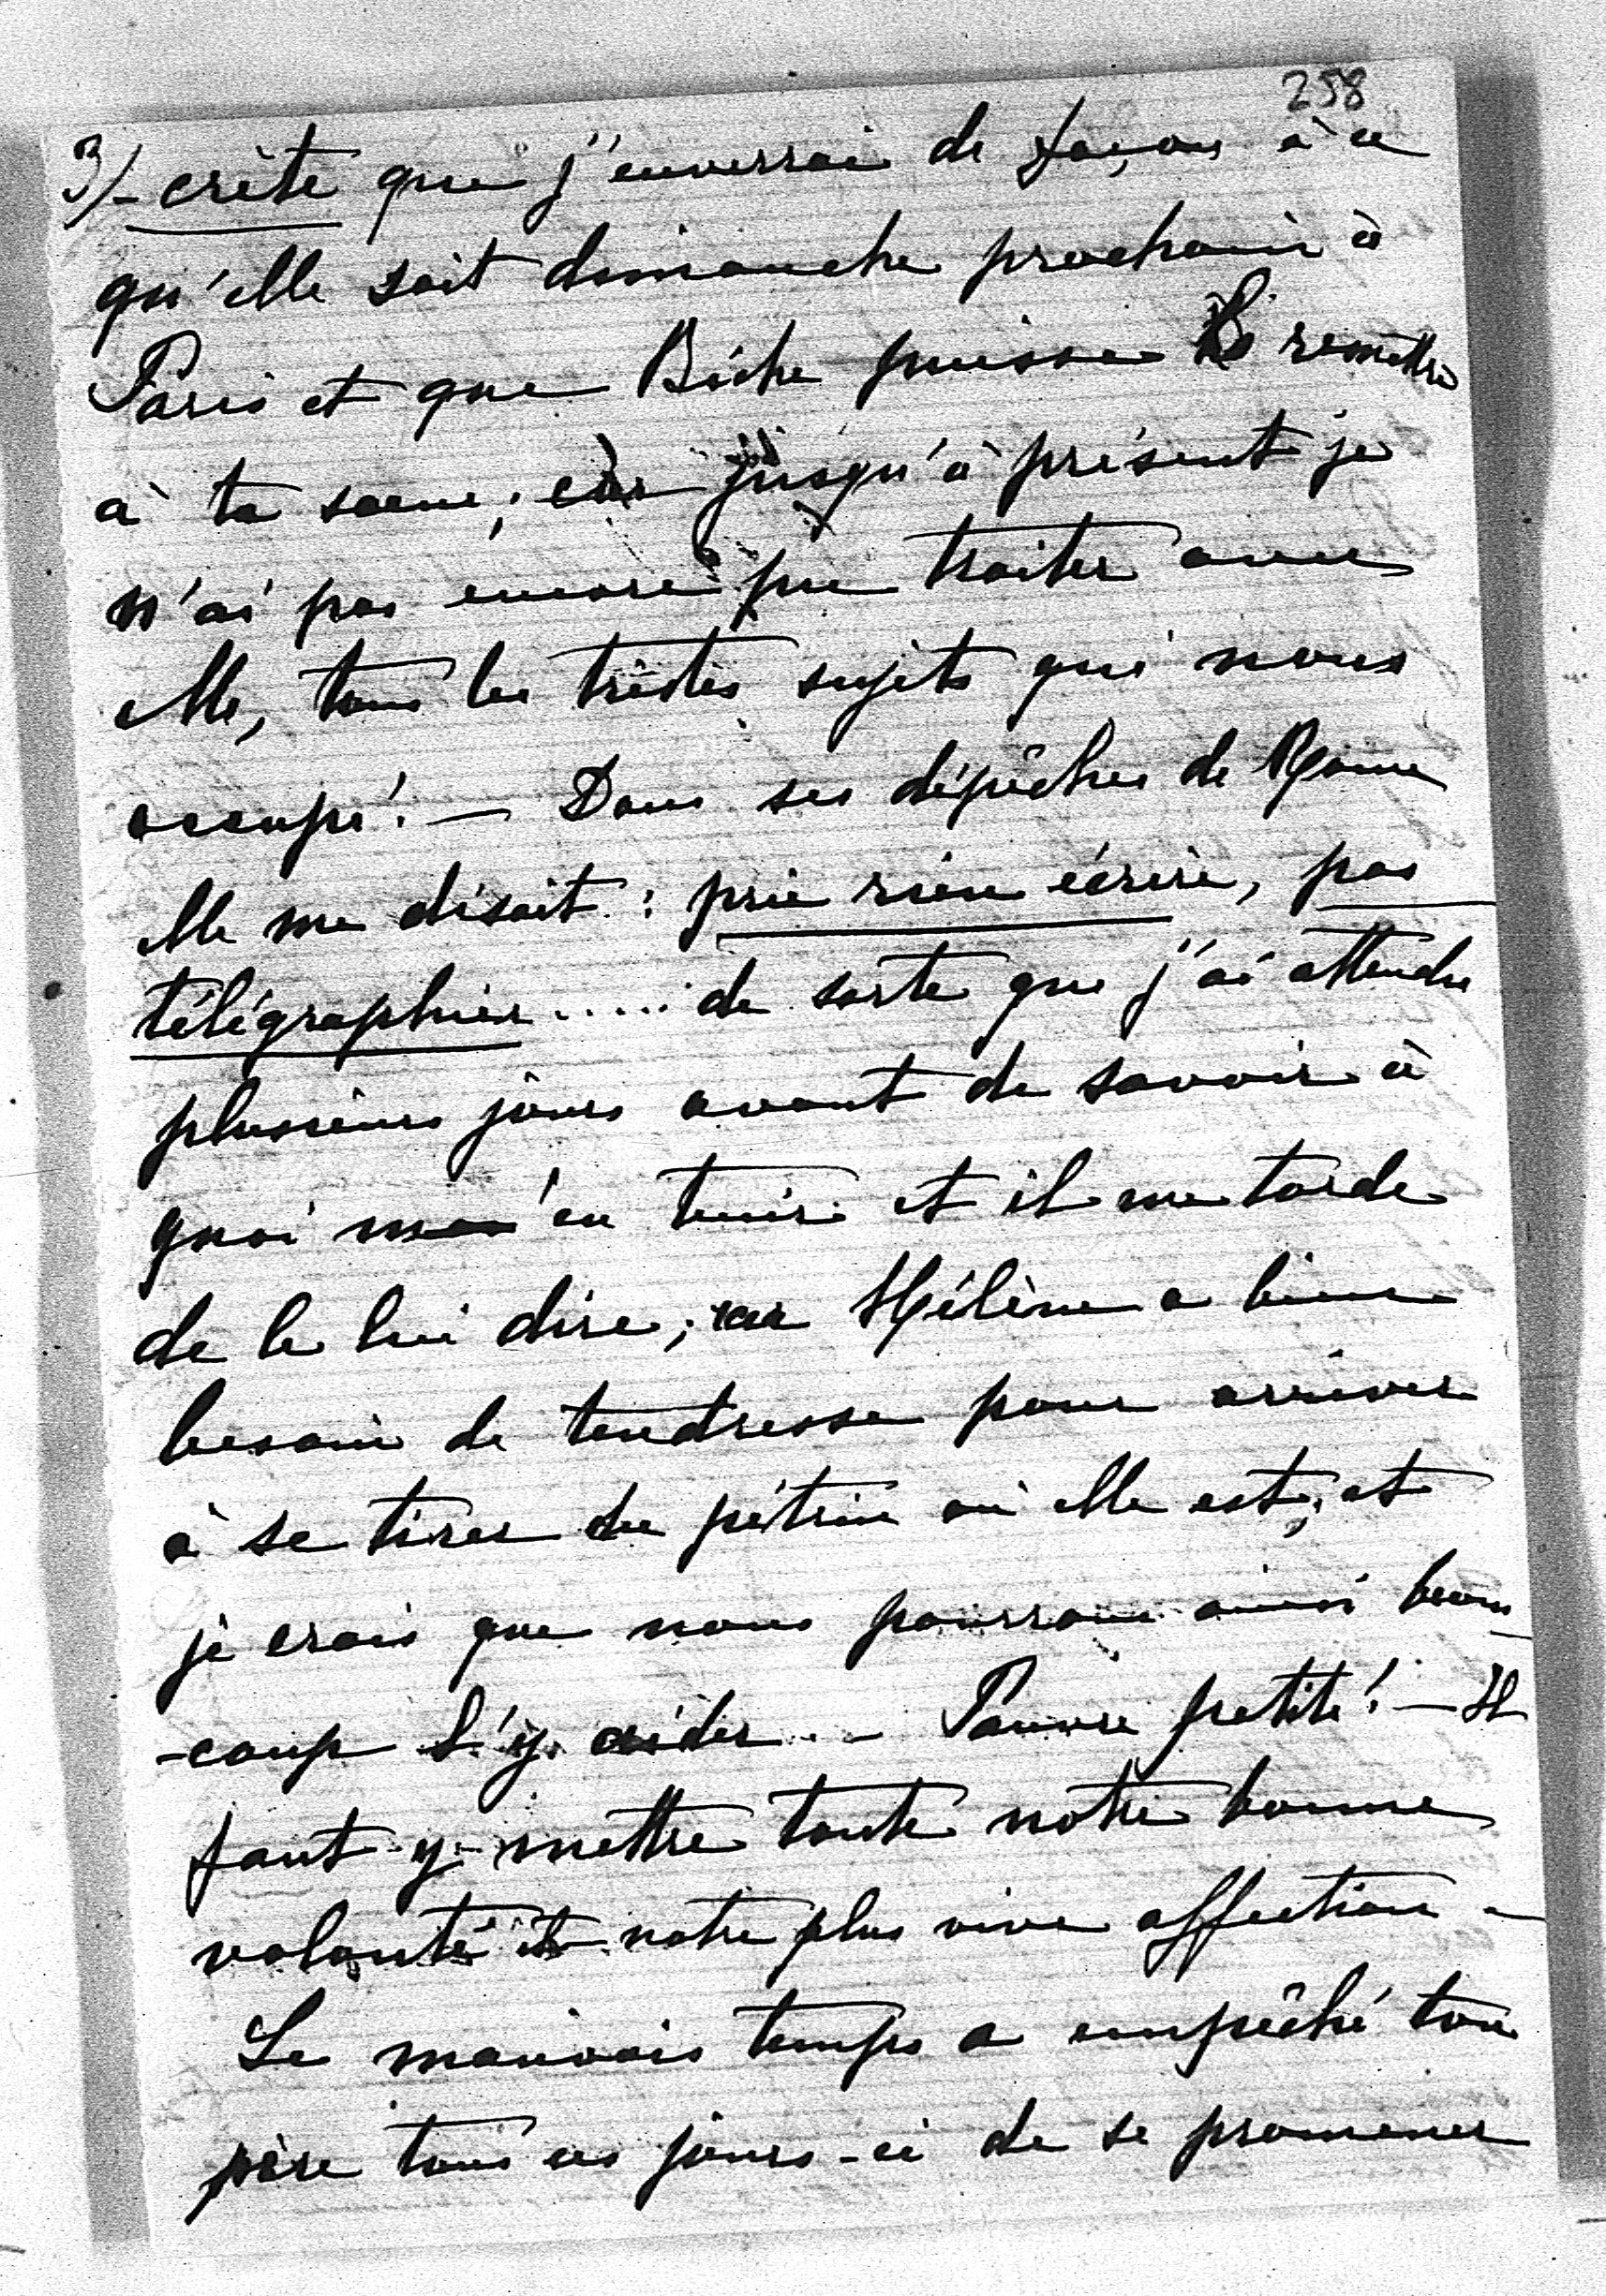 258
3/- crète que j'enverrai de façon à ce
qu'elle soit dimanche prochain à
Paris et que Biche puisse la remettre
à ta soeur; car jusqu'à présent je
n'ai pas encore pu traiter avec
elle, tous les tristes sujets qui nous
occupe! — Dans ses dépêches de Rome
elle me disait : prie rien écrire, pas
télégraphier ..... de sorte que j'ai attendu
plusieurs jours avant de savoir à
quoi m'en tenir et il me tarde
de le lui dire; car Hélène a bien
besoin de tendresse pour arriver
à se tirer du pétrin où elle est, et
je crois que nous pourrons ainsi beau
-coup l'y aider. — Pauvre petite! — Il
faut y mettre toute notre bonne
volonté et notre plus vive affection —
Le mauvais temps a empêché ton
père tous ces jours-ci de se promener